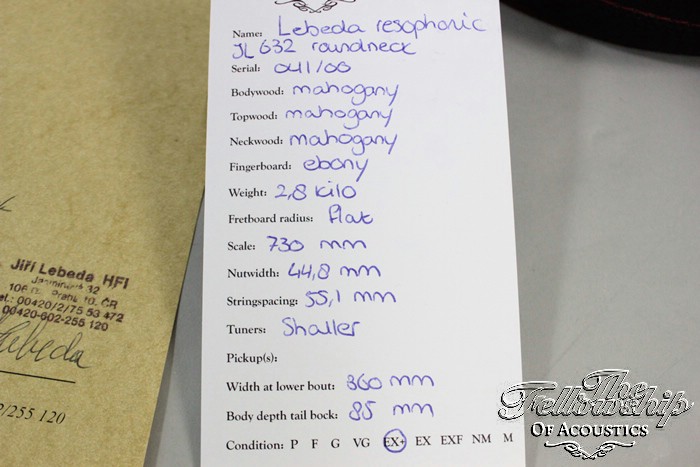 Name: Lebeda resophonic
JL 632 roundneck
Serial: 041/06
Bodywood: mahogany
Topwood: mahogany
Neckwood: mahogany
Fingerboard: ebony
Weight: 2,8 kilo
Fretboard radius: flat
Scale: 730 mm
Nutwidth: 44,8 mm
Stringspacing: 55,1 mm
Tuners: Shaller
Pickup(s):
Width at lower bout: 360 mm
Body depth tail bock: 85 mm
Condition: P F G VG EX+ EX EXF NM M
Jiří Lebeda HFI
32
10. ČR
00420/2/75 53 472
00420-602-255 120
Lebeda
2/255 120
The
Fellowship
Of Acoustics